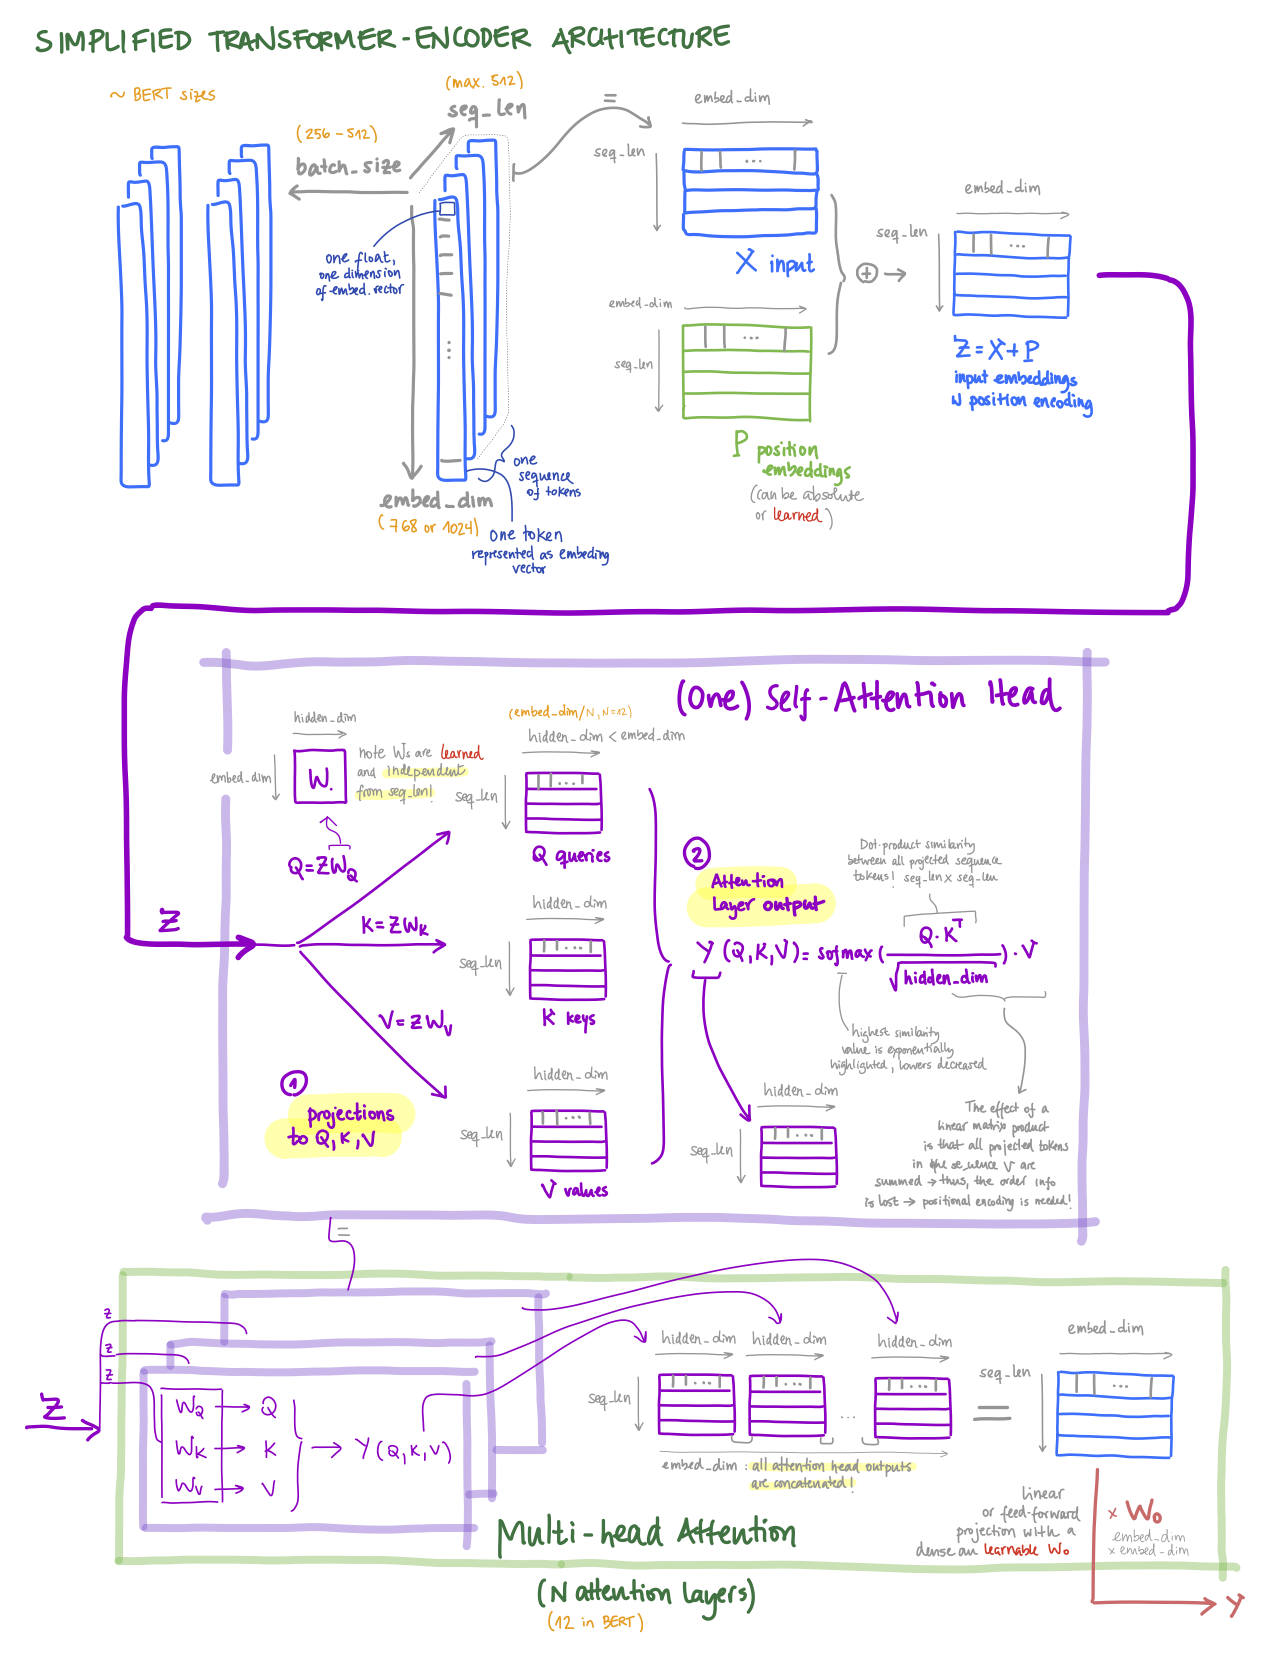 SIMPLIFIED TRANSFORMER-ENCODER ARCHITECTURE
~ BERT sizes
(max. 512)
seq_len
(256-512)
batch_size
one float,
one dimension
of embed. vector
embed_dim
(768 or 1024)
one
sequence
of tokens
one token
represented as embeding
vector
=
embed_dim
seq_len
...
X input
embed_dim
seq_len
...
P position
embeddings
(can be absolute
or learned)
+
embed_dim
seq_len
...
Z = X + P
input embeddings
W position encoding
(One) Self-Attention Head
hidden_dim
embed_dim
W.
note Ws are learned
and independent
from seq_len!
Q = ZWQ
Z
K = ZWK
V = ZWV
1
projections
to Q, K, V
(embed_dim/N, N=12)
hidden_dim < embed_dim
seq_len
...
Q queries
hidden_dim
seq_len
...
K keys
hidden_dim
seq_len
...
V values
2
Attention
Layer output
Dot-product similarity
between all projected sequence
tokens! seq_len x seq_len
Y (Q, K, V) = sofmax ( Q · K^T / √hidden_dim ) · V
highest similarity
value is exponentially
highlighted, lowers decreased
hidden_dim
seq_len
...
The effect of a
linear matrix product
is that all projected tokens
in the se_uence V are
summed → thus, the order info
is lost → positional encoding is needed!
=
Z
Z
Z
Z
WQ → Q
WK → K
WV → V
→ Y (Q, K, V)
hidden_dim hidden_dim hidden_dim
seq_len
... ... ... ...
embed_dim : all attention head outputs
are concatenated!
=
embed_dim
seq_len
...
Multi-head Attention
(N attention layers)
(12 in BERT)
linear
or feed-forward
projection with a
dense an learnable Wo
x Wo
embed_dim
x embed_dim
Y